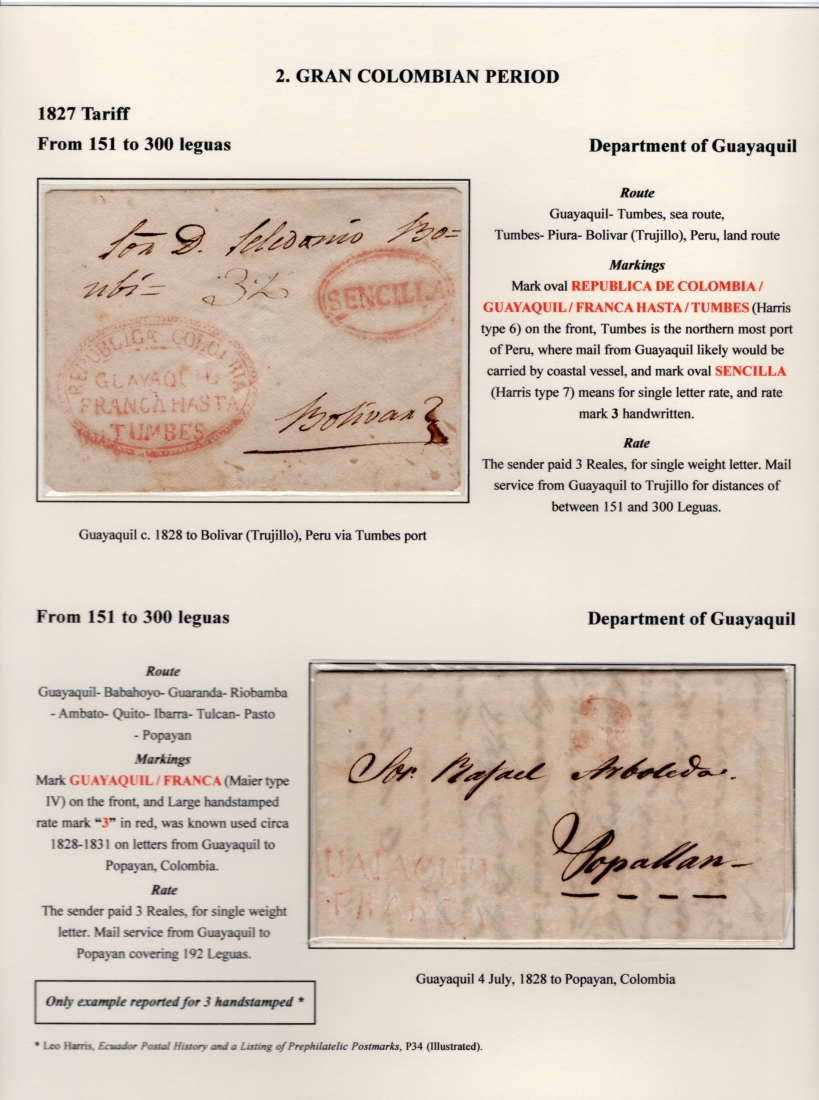 2. GRAN COLOMBIAN PERIOD
1827 Tariff
From 151 to 300 leguas
Department of Guayaquil
Sor D. Seledonio Bo=
nubi=
SENCILLA
REPUBLICA COLOMBIA
GUAYAQUIL
FRANCA HASTA
TUMBES
Bolivar
Route
Guayaquil- Tumbes, sea route,
Tumbes- Piura- Bolivar (Trujillo), Peru, land route
Markings
Mark oval REPUBLICA DE COLOMBIA /
GUAYAQUIL / FRANCA HASTA / TUMBES (Harris
type 6) on the front, Tumbes is the northern most port
of Peru, where mail from Guayaquil likely would be
carried by coastal vessel, and mark oval SENCILLA
(Harris type 7) means for single letter rate, and rate
mark 3 handwritten.
Rate
The sender paid 3 Reales, for single weight letter. Mail
service from Guayaquil to Trujillo for distances of
between 151 and 300 Leguas.
Guayaquil c. 1828 to Bolivar (Trujillo), Peru via Tumbes port
From 151 to 300 leguas
Department of Guayaquil
Route
Guayaquil- Babahoyo- Guaranda- Riobamba
- Ambato- Quito- Ibarra- Tulcan- Pasto
- Popayan
Markings
Mark GUAYAQUIL / FRANCA (Maier type
IV) on the front, and Large handstamped
rate mark “3” in red, was known used circa
1828-1831 on letters from Guayaquil to
Popayan, Colombia.
Rate
The sender paid 3 Reales, for single weight
letter. Mail service from Guayaquil to
Popayan covering 192 Leguas.
Only example reported for 3 handstamped *
3
Sor. Rafael Arboleda.
Popallan
UAIAQUIL
FRANCA
Guayaquil 4 July, 1828 to Popayan, Colombia
* Leo Harris, Ecuador Postal History and a Listing of Prephilatelic Postmarks, P34 (Illustrated).